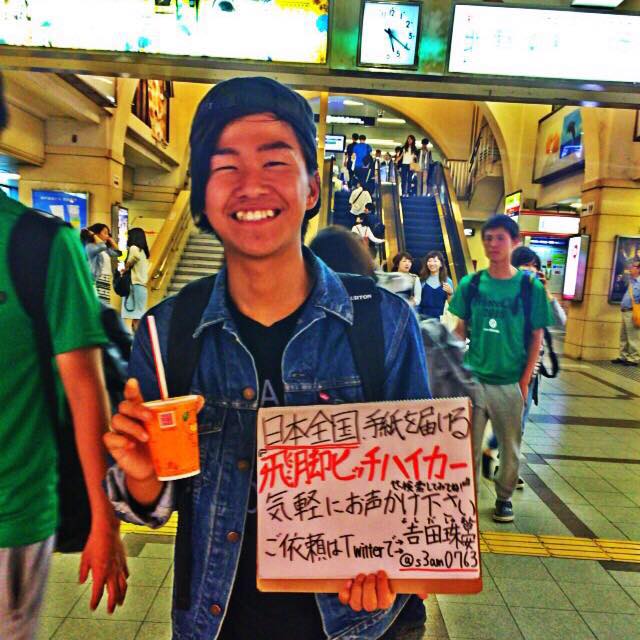 日本全国、手紙を届ける
"飛脚ヒッチハイカー"
で検索してみてね!!
気軽にお声かけ下さい
ご依頼はTwitterで→
@s3am0763
BURTON